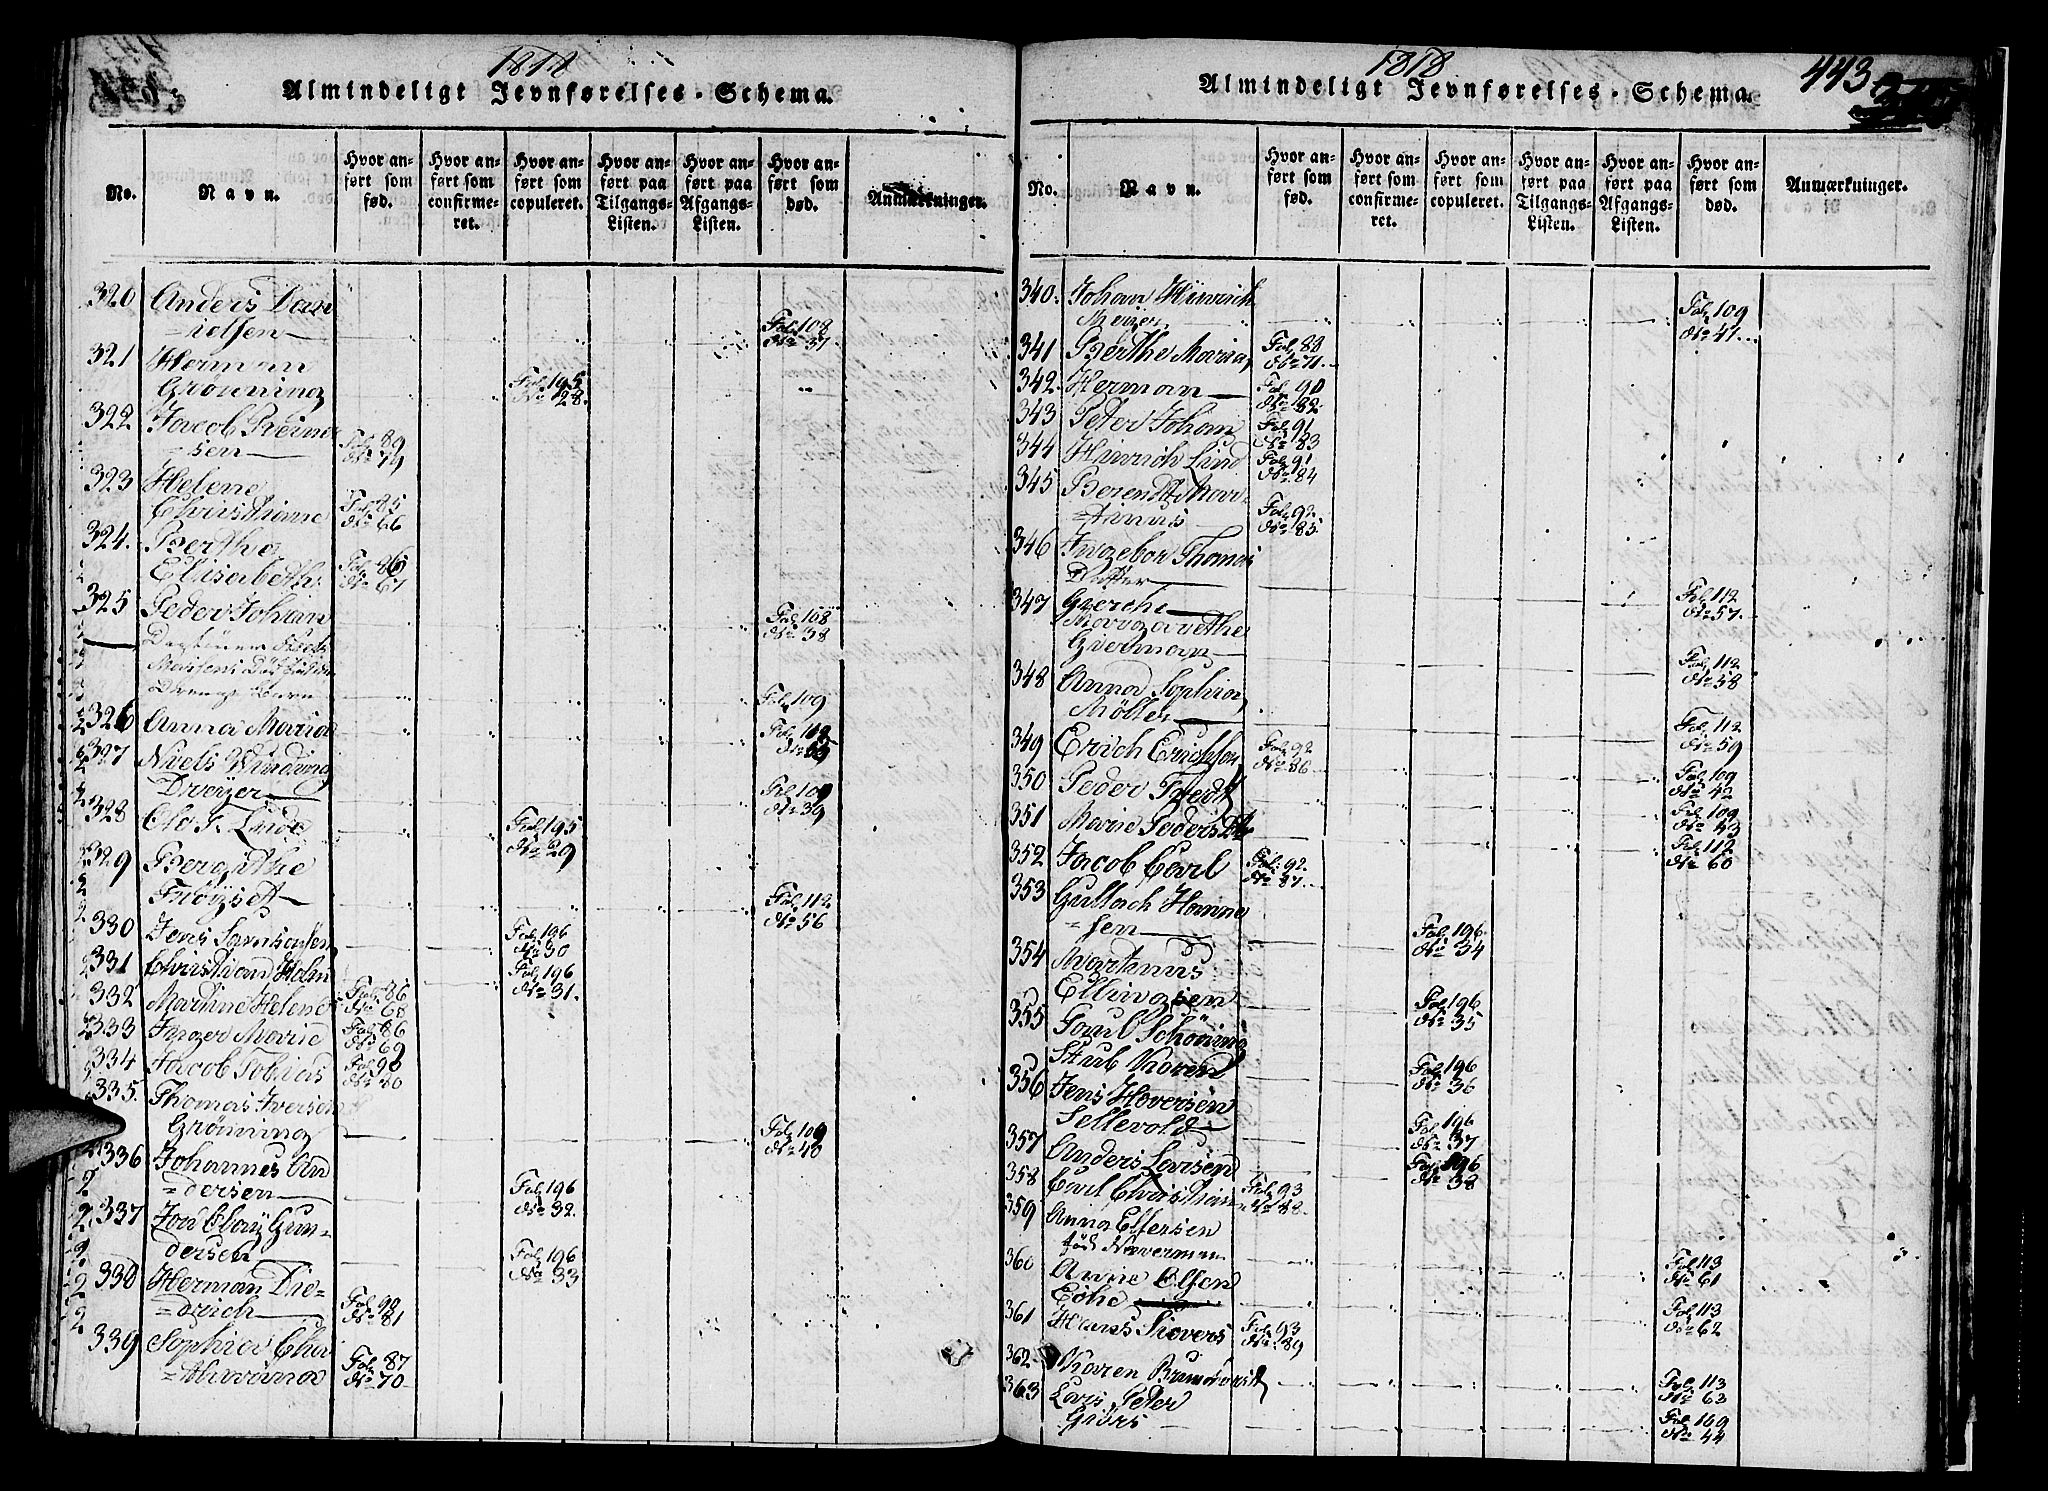 1818
Almindeligt Jevnførelses-Schema.
No.
Navn.
Hvor anført som fød.
Hvor anført som confirmeret.
Hvor anført som copuleret.
Hvor anført paa Tilgangs-Listen.
Hvor anført paa Afgangs-Listen.
Hvor anført som død.
Anmærkninger.
320 Anders Dan
=ielsen Fol. 108 No 37
321 Herman
Grønning Fol. 195 No 28.
322 Jacob Berner
=sen Fol. 89 No 79
323 Helene
Christiane Fol. 85 No 66
324. Berthe
Elisabeth. Fol. 86 No 67
325 Peder Johan Fol. 108 No 38
Drenge Barn Fol. 109
326 Anna Maria Fol. 112
327 Niels Winding
Dreyer Fol. 109 No 39
328 Ole T. Linde Fol. 195 No 29
329 Bergithe
Fløyset Fol. 112 No 56
330 Jens Samsonsen Fol. 196 No 30
331 Christian Holm Fol. 196 No 31.
332 Martine Helene Fol. 86 No 68
333 Inger Marie Fol. 86 No 69
334 Jacob Tobias Fol. 90 No 80
335. Thomas Iversen
Grønning Fol. 109 No 40
336 Johannes An
=dersen Fol. 196 No 32.
337 Gun=
dersen Fol. 196 No 33
338 Herman Die=
=drich Fol. 90 No 81
339 Sophia Cha
=tharina Fol. 87 No 70
1818
443
Almindeligt Jevnførelses-Schema.
No.
Navn.
Hvor anført som fød.
Hvor anført som confirmeret.
Hvor anført som copuleret.
Hvor anført paa Tilgangs-Listen.
Hvor anført paa Afgangs-Listen.
Hvor anført som død.
Anmærkninger.
340. Johan Hinrich
Meyer Fol. 109 No 41
341 Berthe Maria Fol. 88 No 71
342. Herman Fol. 90 No 82
343 Peter Johan Fol. 91 No 83
344 Hinrich Lind Fol. 91 No 84
345 Berendt Mar
=tinus Fol. 92 No 85
346 Ingebor Thomas
Datter Fol. 112 No 57
347 Gierche
Margarethe
Giermann Fol. 112 No 58
348 Anna Sophia
Møller Fol. 112 No 59
349 Erich Erichsen Fol. 92 No 86
350 Peder Tredt Fol. 109 No 42
Fol. 109 No 43
351 Marie Peders Dtr Fol. 112 No 60
352 Jacob Carl Fol. 92. No 87
353 Gullach Hanne
=sen Fol. 196 No 34
354 Martinus
Ellingsen Fol. 196 No 35
355 Poul Schöning
Stub Koren Fol. 196 No 36
356 Jens Hoversen
Sellevold Fol. 196 No 37
357 Anders Larsen Fol. 196 No 38
358 Carl Christian Fol. 93 No 88.
359 Anna Ellersen
fød Naverman Fol. 113 No 61
360 Anne Olsen
Eohe Fol. 113 No 62
361 Hans Sievers Fol. 93 No 89
362 Karen Brundqvist Fol. 113 No 63
363 Lars Peter
Giörs Fol. 109 No 44